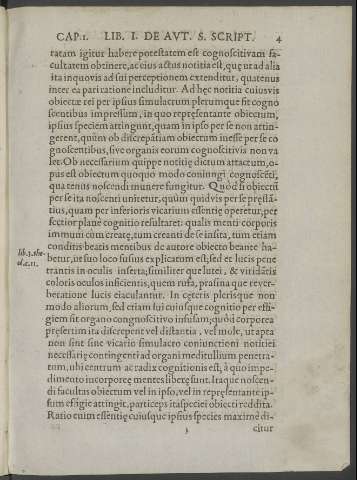 CAP.1. LIB. I. DE AVT. S. SCRIPT. 4
ratam igitur habere potestatem est cognoscitivam fa-
cultatem obtinere, ac eius actus notitia est, quę ut ad alia
ita in quovis ad sui perceptionem extenditur, quatenus
inter ea pari ratione includitur. Ad hęc notitia cuiusvis
obiectæ rei per ipsius simulacrum plerumque fit cogno
scentibus impressum, in quo repręsentante obiectum,
ipsius speciem attingunt, quam in ipso per se non attin-
gerent, quùm ob discrepātiam obiectum inesse per se co
gnoscentibus, sive organis eorum cognoscitivis non va
let. Ob necessarium quippe notitię dictum attactum, o-
pus est obiectum quoquo modo coniungi cognoscēti,
qua tenus noscendi munere fungitur. Quòd si obiectū
per se ita noscenti uniretur, quùm quidvis per se pręstā-
tius, quam per inferioris vicarium essentię operetur, per
fectior planè cognitio resultaret: qualis menti corporis
immuni cùm creatę, tum creanti de se insita, tum etiam
conditis beatis mentibus de autore obiecto beante ha-
betur, ut suo loco fusius explicatum est; sed et lucis pene
lib.3. the-
ol.c.11.
trantis in oculis inserta; similiter que lutei, & viridātis
coloris oculos inficientis, quem rufa, prasina que rever-
beratione lucis eiaculantur. In cęteris plerisque non
modo aliorum, sed etiam sui cuiusque cognitio per effi-
giem sit organo congnoscitivo insusam; quòd corporea
pręsertim ita discrepent vel distantia, vel mole, ut apta
non sint sine vicario simulacro coniunctioni notitiei
necessarię contingenti ad organi meditullium penetra-
tum, ubi centrum ac radix cognitionis est, à quo impe-
dimento incorporeę mentes liberę sunt. Itaque noscen-
di facultas obiectum vel in ipso, vel in repręsentante ip-
sum effigie attingit, particeps ita speciei obiecti reddita.
Ratio enim essentię cuiusque ipsius species maximè di-
citur